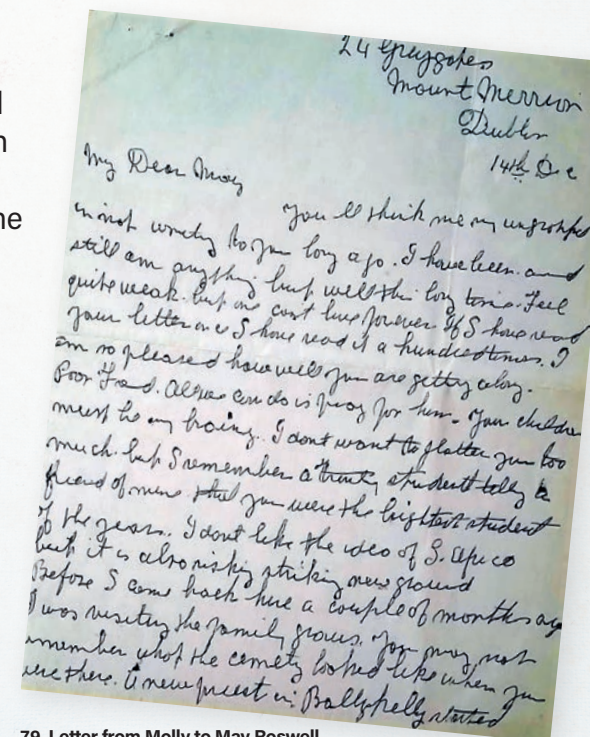 24 Greygates
Mount Merrion
Dublin
14th Dec
My Dear May
You'll think me very ungrateful
in not writing to you long ago. I have been and
still am anything but well this long time. Feel
quite weak but one cant live forever. If I have read
your letter once I have read it a hundred times. I
am so pleased how well you are getting along.
Poor Fred. All we can do is pray for him. Your children
must be very brainy. I dont want to flatter you too
much but I remember a trinity student telling a
friend of mine that you were the brightest student
of the years. I dont like the idea of S. Africa
but it is also risky striking new ground
Before I came back here a couple of months ago
I was visiting the family graves. You may not
remember what the cemetry looked like when you
were there. A new priest in Ballykelly started
79. Letter from Molly to May Boswell